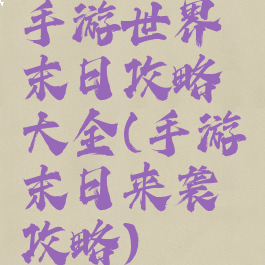 手游世界
末日攻略
大全(手游
末日来袭
攻略)